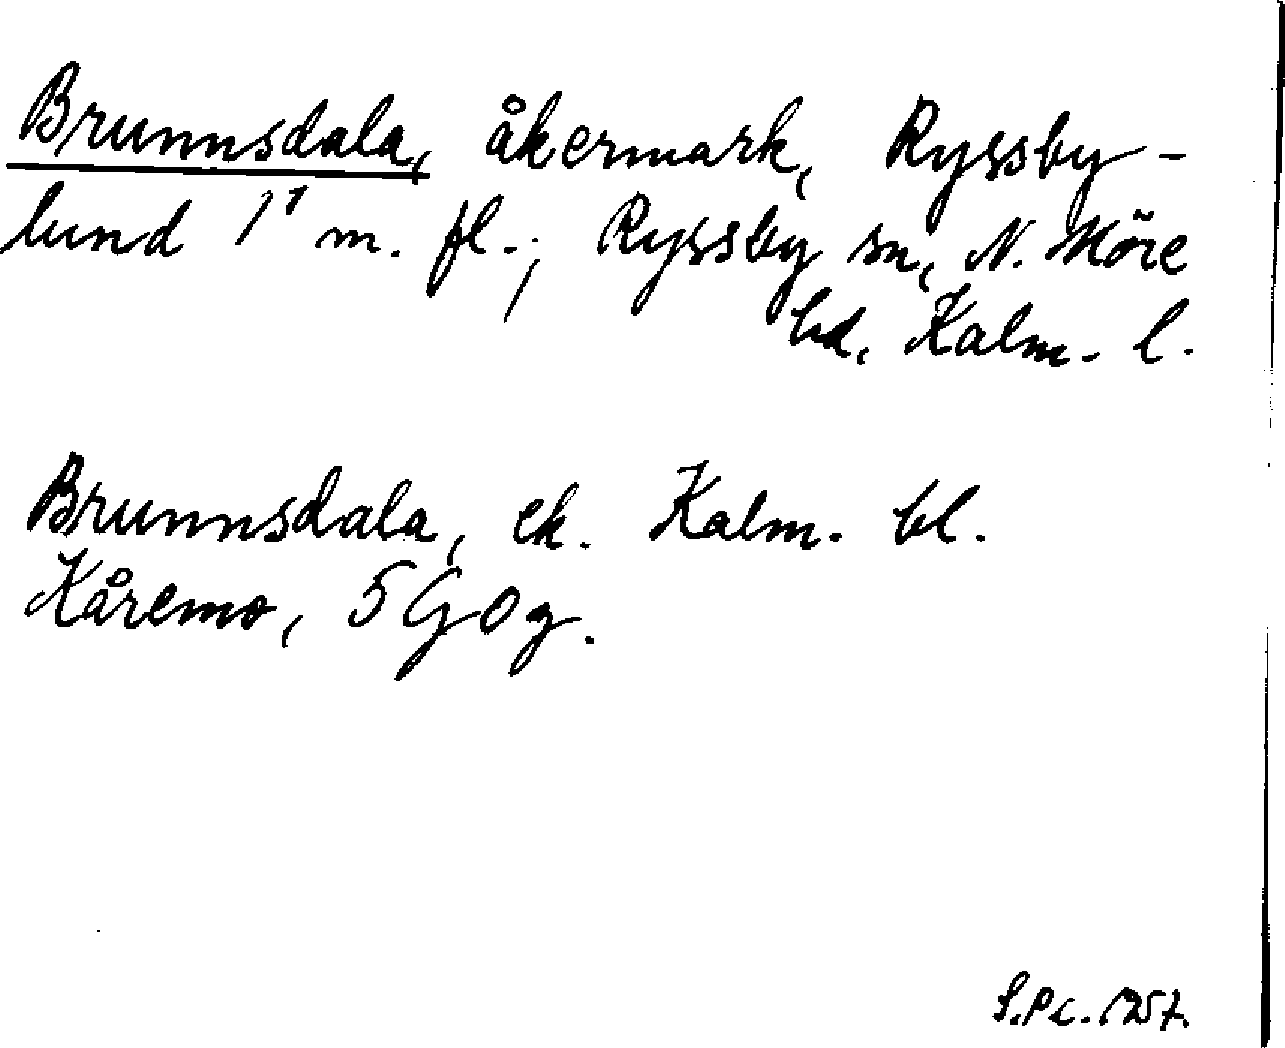 Brunnsdala, åkermark, Ryssby-
lund 1¹ m. fl., Ryssby sn, N. Möre
hd, Kalm. l.
Brunnsdala, ek. Kalm. bl.
Kåremo, 5 G 0 g.